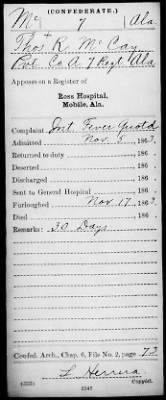 (CONFEDERATE.)
Mc 7 Ala
Thos R. McCay
Pvt Co A 7 Regt Ala
Appears on a Register of
Ross Hospital,
Mobile, Ala.
Complaint Int. Fever Quotd
Admitted Nov. 8, 1863.
Returned to duty , 186 .
Deserted , 186 .
Discharged , 186 .
Sent to General Hospital , 186 .
Furloughed Nov. 17, 1863.
Died , 186 .
Remarks: 30 Days
Confed. Arch., Chap. 6, File No. 2, page 73
L Herrera
Copyist.